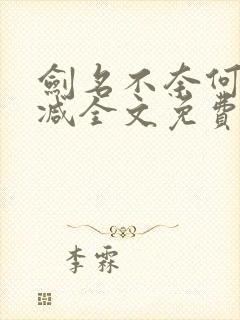 劍名不奈何
減全文免費
李霖